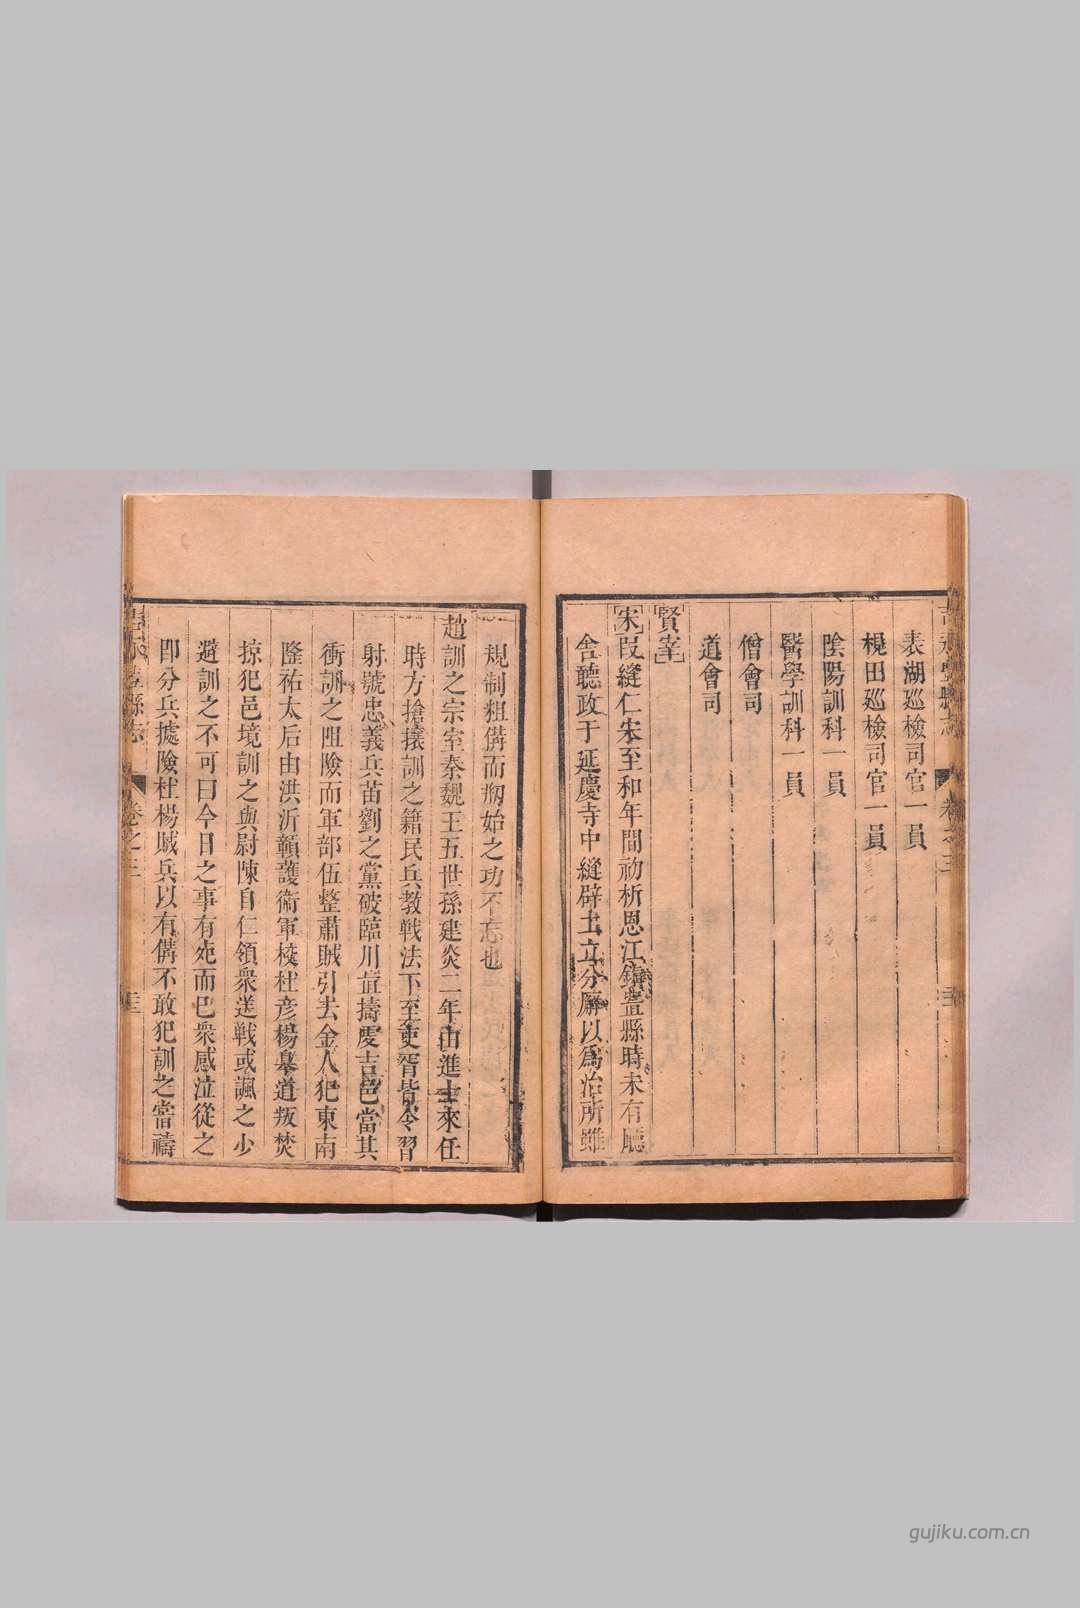 表湖巡檢司官一員
梘田巡檢司官一員
陰陽訓科一員
醫學訓科一員
僧會司
道會司
賢宰
宋段縫仁宋至和年間初析恩江鎮置縣時未有廳
舍聽政于延慶寺中縫辟土立分廨以為治所雖
規制粗備而剏始之功不忘也
趙訓之宗室秦魏王五世孫建炎二年由進士來任
時方搶攘訓之籍民兵教戰法下至吏胥皆令習
射號忠義兵苗劉之黨破臨川直擣虔吉邑當其
衝訓之阻險而軍部伍整肅賊引去金人犯東南
隆祐太后由洪泝贛護衛軍校杜彥楊 道叛焚
掠犯邑境訓之與尉陳自仁領衆逆戰或諷之少
避訓之不可曰今日之事有死而已衆感泣從之
即分兵據險杜楊賊兵以有備不敢犯訓之嘗禱
縣志
卷之三
gujiku.com.cn